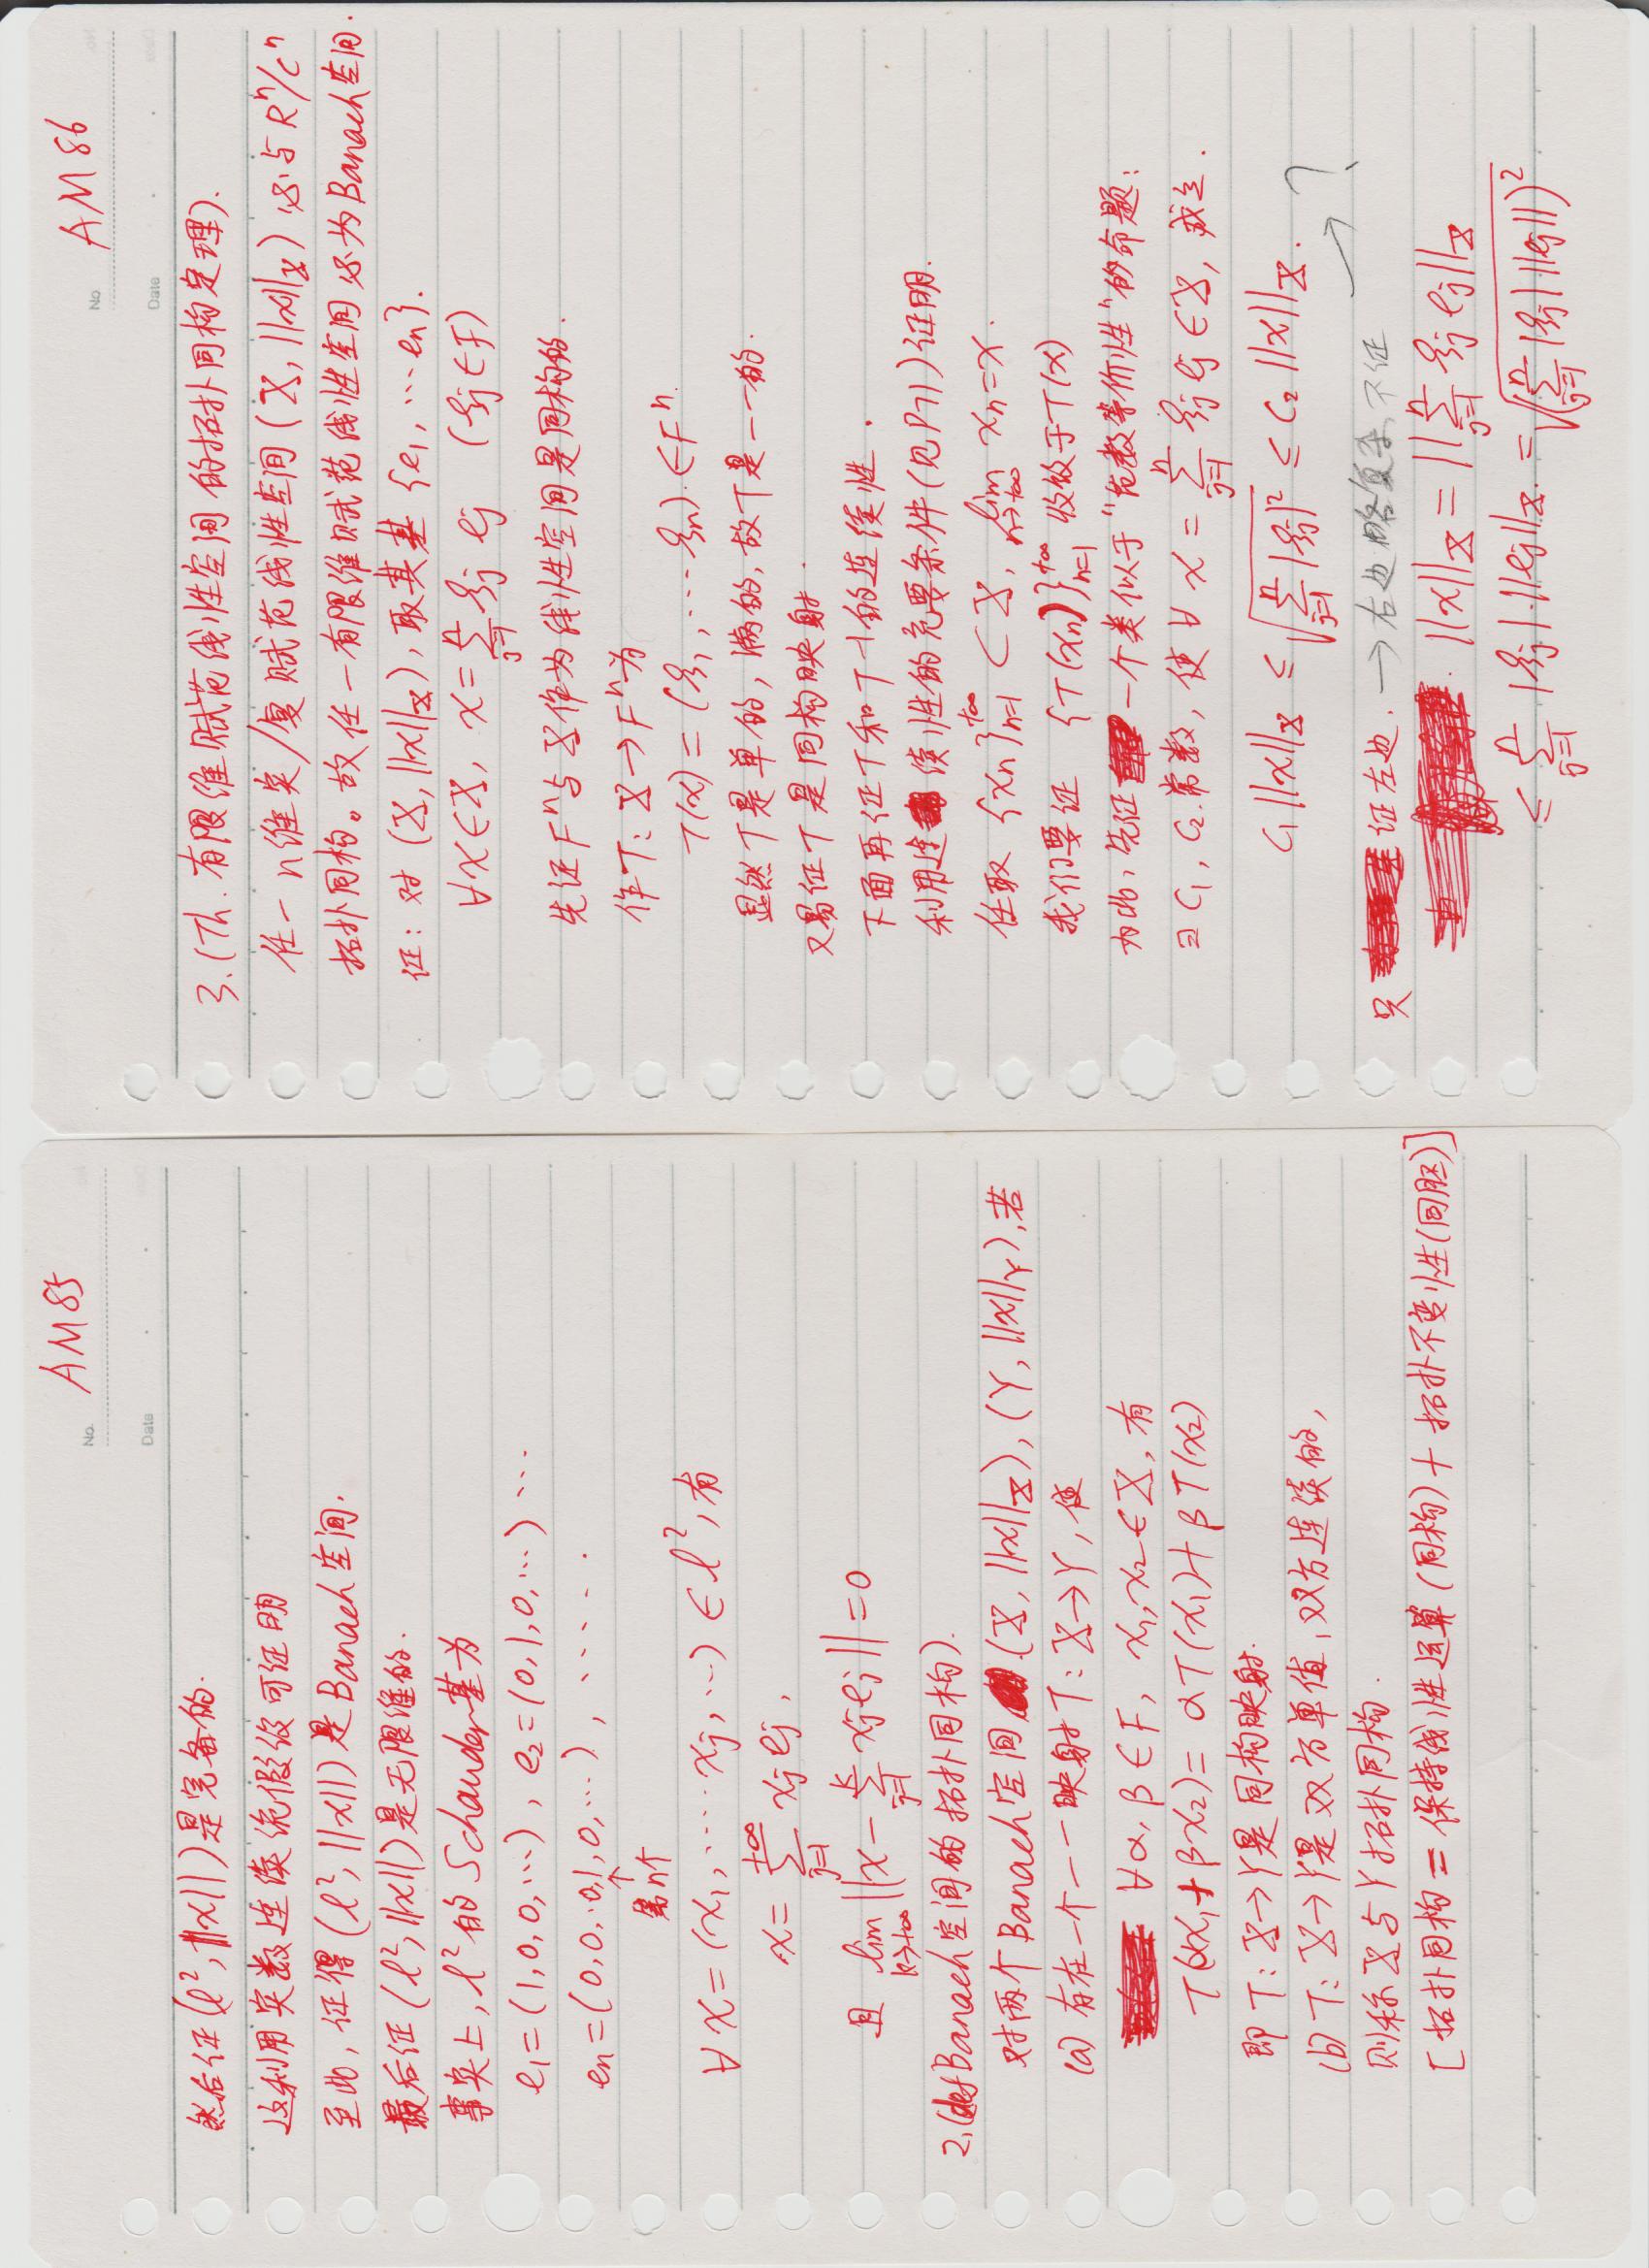 AM 85
No.
Date
然后证(ℓ², ||x||)是完备的.
这利用实数连续统假设可证明
至此, 证得(ℓ², ||x||)是Banach空间.
最后证(ℓ², ||x||)是无限维的.
事实上, ℓ²的Schauder基为
e₁=(1,0,0,⋯), e₂=(0,1,0,⋯) ⋯
eₙ=(0,0,⋅⋅0,1,0,⋯), ⋯⋯
↑
第n个
∀x=(x₁,⋯⋯xⱼ,⋯)∈ℓ², 有
x=∑_{j=1}^{+∞} xⱼeⱼ,
且 lim_{k→+∞} ||x-∑_{j=1}^{k} xⱼeⱼ||=0
2.(def Banach空间的拓扑同构).
对两个Banach空间(X, ||x||_X), (Y, ||x||_Y), 若
(a) 存在一个一一映射T: X→Y, 使
∀α,β∈F, x₁,x₂∈X, 有
T(αx₁+βx₂)=αT(x₁)+βT(x₂)
即T: X→Y是同构映射.
(b) T: X→Y是双方单值,双方连续的,
则称X与Y拓扑同构.
[拓扑同构=保持线性运算(同构)+拓扑不变性(同胚)]
AM 86
No
Date
3.(Th. 有限维赋范线性空间的拓扑同构定理).
任一n维实/复赋范线性空间(X, ||x||_X)必与Rⁿ/Cⁿ
拓扑同构。故任一有限维赋范线性空间必为Banach空间.
证: 对(X, ||x||_X), 取其基{e₁,⋯eₙ}.
∀x∈X, x=∑_{j=1}^{n} ξⱼ eⱼ (ξⱼ∈F)
先证Fⁿ与X作为线性空间是同构的.
作T: X→Fⁿ为
T(x)=(ξ₁,⋯ξₙ).∈Fⁿ.
显然T是单的, 满的, 故T是一一的.
又易证T是同构映射.
下面再证T和T⁻¹的连续性.
利用连续性的充要条件(见P71)证明.
任取 {xₙ}_{n=1}^{+∞}⊂X, lim_{n→+∞} xₙ=x.
我们要证 {T(xₙ)}_{n=1}^{+∞} 收敛于T(x)
为此, 先证一个类似于"范数等价性"的命题:
∃C₁, C₂.常数, 使∀x=∑_{j=1}^{n} ξⱼeⱼ∈X, 成立.
C₁||x||_X ≤ √(∑_{j=1}^{n} |ξⱼ|²) ≤ C₂||x||_X.
?
只证左边. →右边略复杂, 不证 →
||x||_X=||∑_{j=1}^{n} ξⱼeⱼ||_X
≤∑_{j=1}^{n} |ξⱼ|⋅||eⱼ||_X.=√(∑_{j=1}^{n} |ξⱼ|⋅||eⱼ||)²